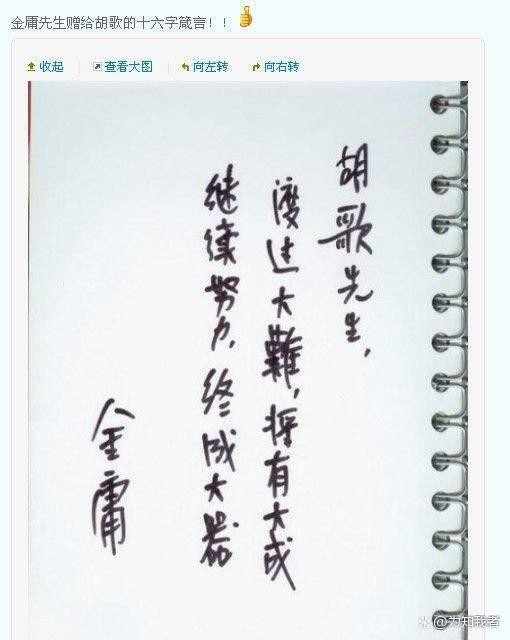 金庸先生赠给胡歌的十六字箴言！！
收起 查看大图 向左转 向右转
胡歌先生，
渡过大難，将有大成
继续努力，终成大器
金庸
@为知我者